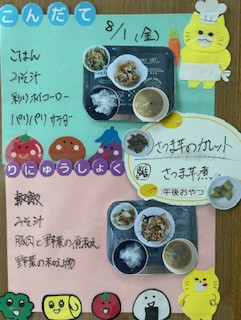 こんだて
8/1(金)
ごはん
みそ汁
彩りホイコーロー
パリパリサラダ
さつま芋のカレット
さつま芋煮
午後おやつ
りにゅうしょく
軟飯
みそ汁
豚肉と野菜の煮和え
野菜の和え物